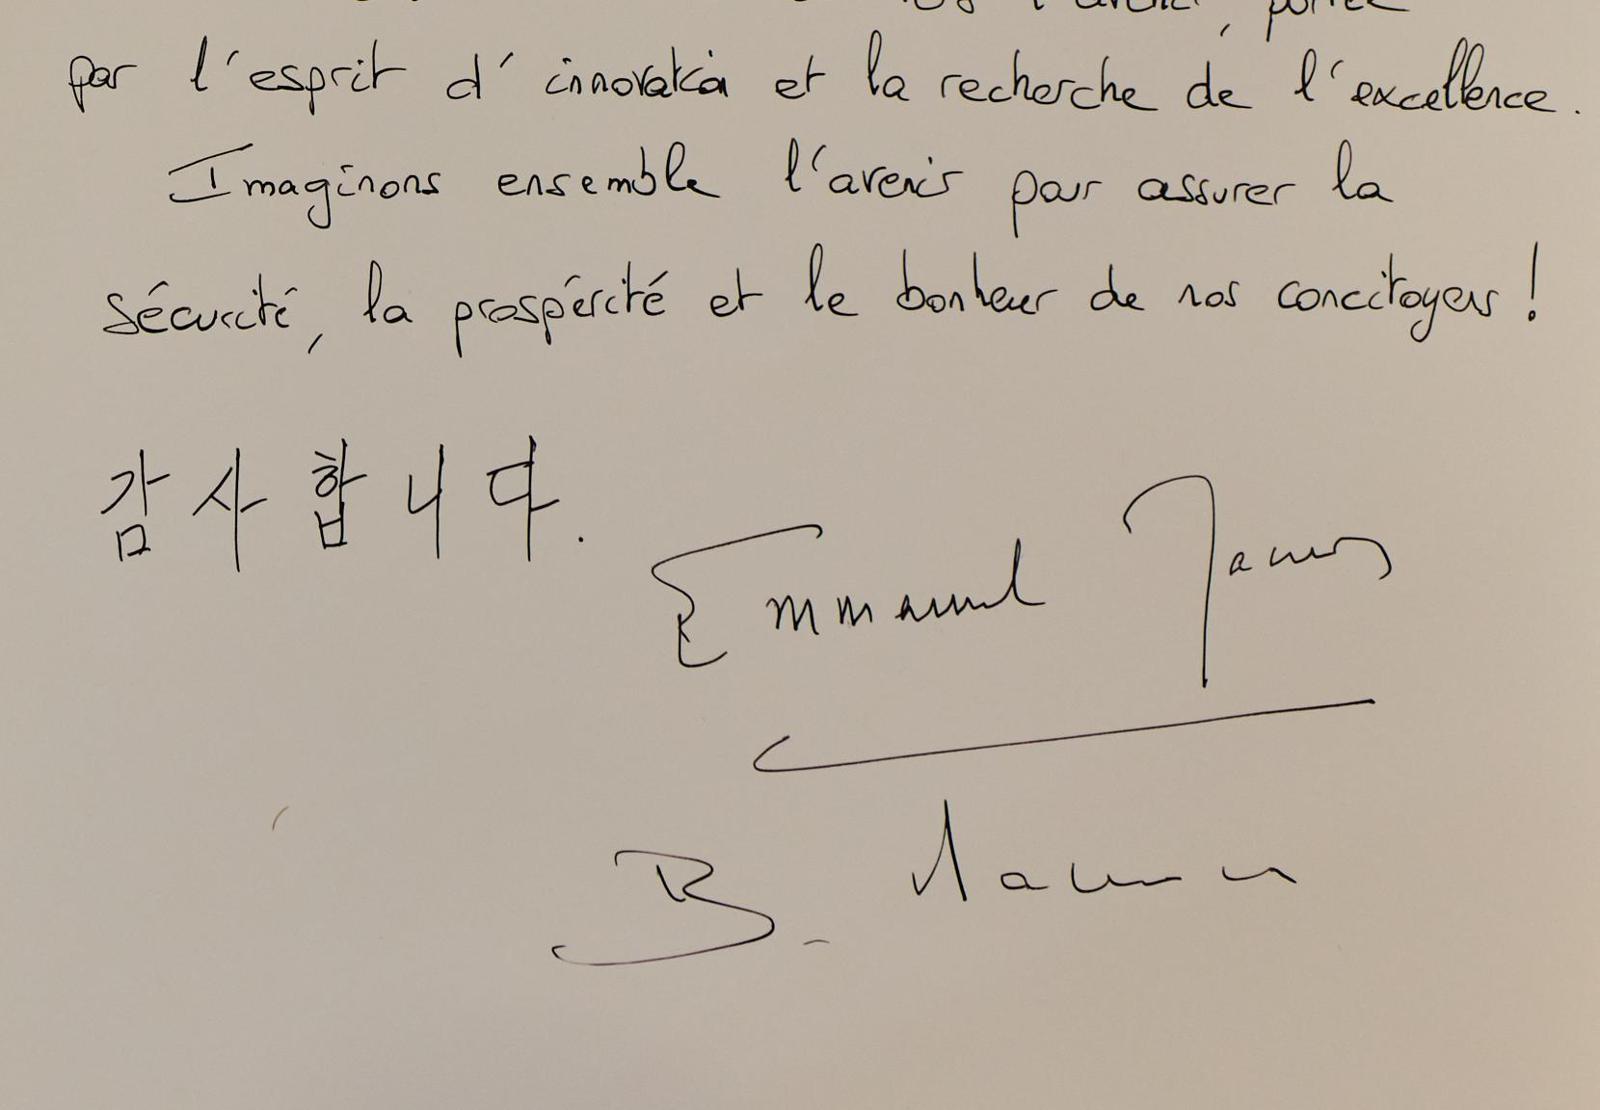 l'avenir, portée
par l'esprit d'innovation et la recherche de l'excellence.
Imaginons ensemble l'avenir pour assurer la
sécurité, la prospérité et le bonheur de nos concitoyens !
감사합니다.
Emmanuel Macron
B. Macron